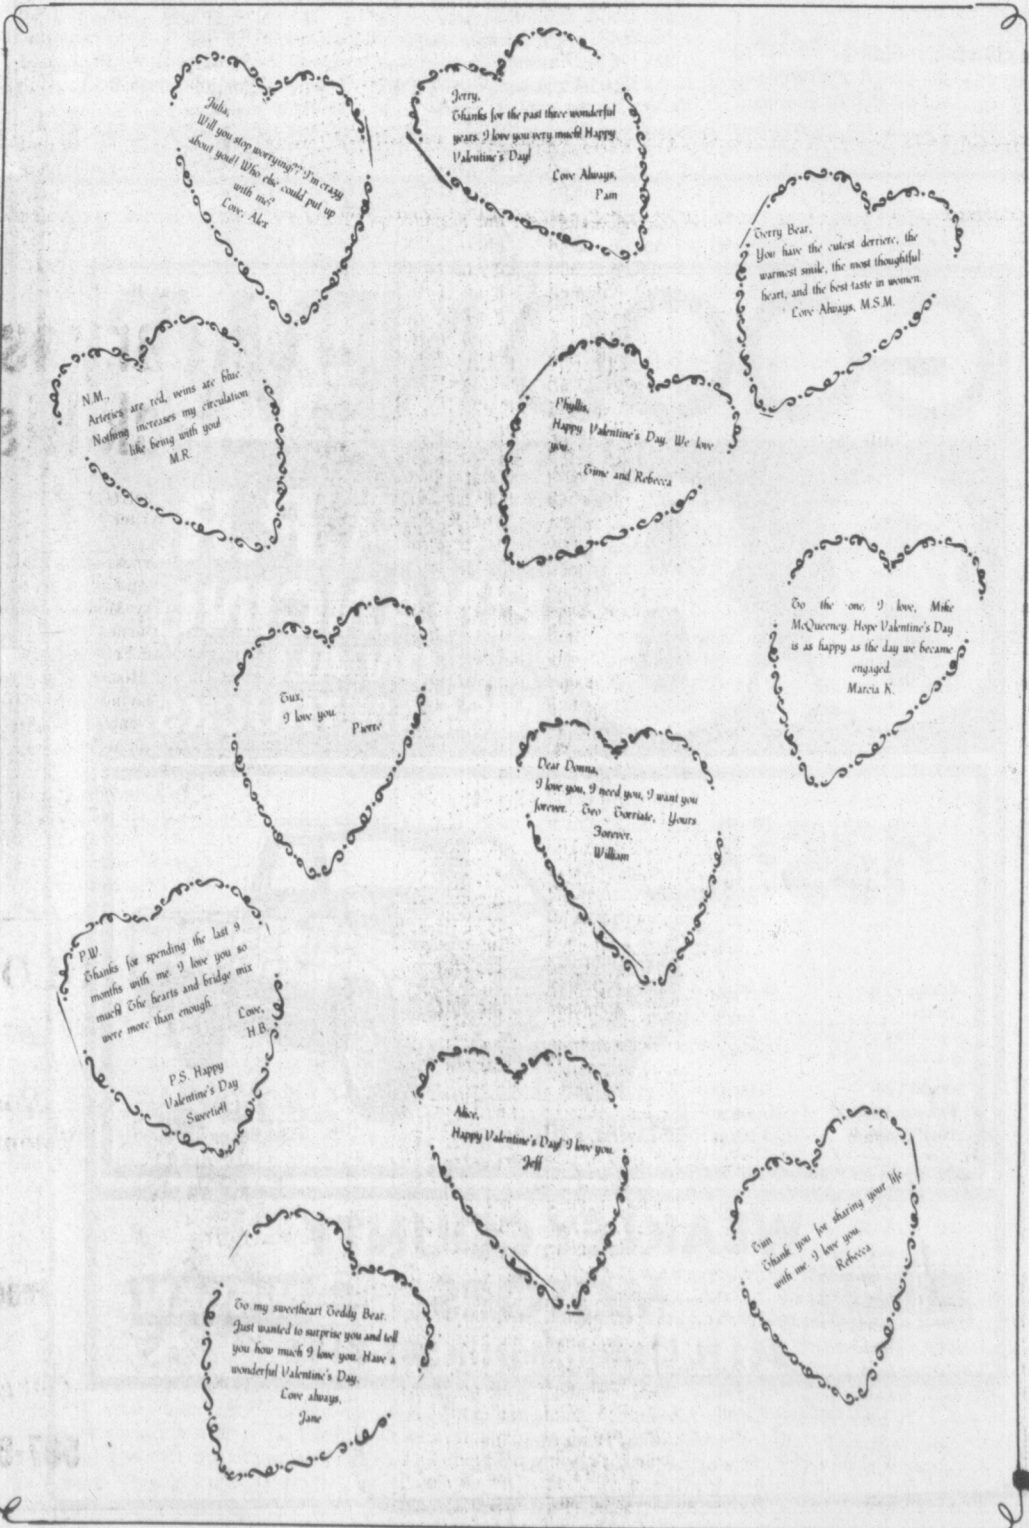 Julia,
Will you stop worrying?? I'm crazy
about you!! Who else could put up
with me?
Love, Alex
Jerry,
Thanks for the past three wonderful
years. I love you very much! Happy
Valentine's Day!
Love Always,
Pam
Terry Bear,
You have the cutest derriere, the
warmest smile, the most thoughtful
heart, and the best taste in women.
Love Always, M.S.M.
N.M.,
Arteries are red, veins are blue
Nothing increases my circulation
like being with you!
M.R.
Phyllis,
Happy Valentine's Day. We love
you.
Time and Rebecca
To the one I love, Mike
McQueeney. Hope Valentine's Day
is as happy as the day we became
engaged.
Marcia K.
Tux,
I love you.
Pierre
Dear Donna,
I love you, I need you, I want you
forever. Teo Torriate, Yours
Forever,
William
P.W.
Thanks for spending the last 9
months with me. I love you so
much! The hearts and bridge mix
were more than enough.
Love,
H.B.
P.S. Happy
Valentine's Day
Sweetie!!
Alice,
Happy Valentine's Day! I love you.
Jeff
Tim
Thank you for sharing your life
with me. I love you.
Rebecca
To my sweetheart Teddy Bear.
Just wanted to surprise you and tell
you how much I love you. Have a
wonderful Valentine's Day.
Love always,
Jane